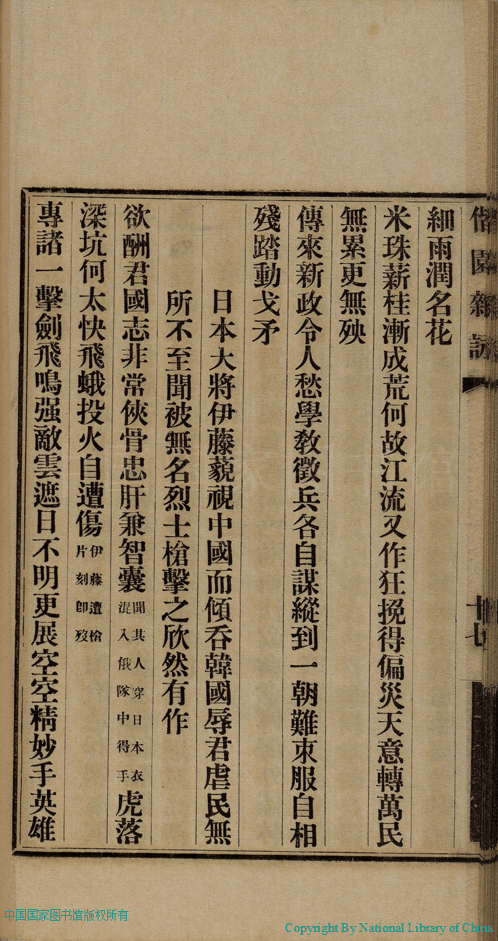 細雨潤名花
米珠薪桂漸成荒何故江流又作狂挽得偏災天意轉萬民
無累更無殃
傳來新政令人愁學教徵兵各自謀縱到一朝難束服自相
殘踏動戈矛
日本大將伊藤藐視中國而傾吞韓國辱君虐民無
所不至聞被無名烈士槍擊之欣然有作
欲酬君國志非常俠骨忠肝兼智囊聞其人穿日本衣混入俄隊中得手虎落
深坑何太快飛蛾投火自遭傷伊藤遭槍片刻卽歿
專諸一擊劍飛鳴强敵雲遮日不明更展空空精妙手英雄
中国国家图书馆版权所有
Copyright By National Library of China